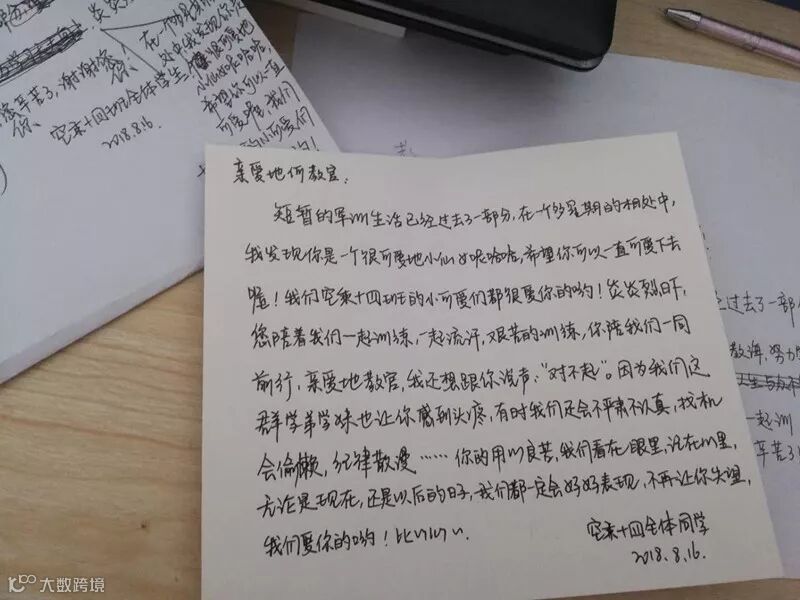 亲爱地何教官:
短暂的军训生活已经过去了一部分,在一个多星期的相处中,
我发现你是一个很可爱地小仙女呢哈哈,希望你可以一直可爱下去
喔!我们空乘十四班的小可爱们都很爱你的哟!炎炎烈日下,
您陪着我们一起训练,一起流汗,艰苦的训练,你陪我们一同
前行,亲爱地教官,我还想跟你说声:“对不起”。因为我们这
群学弟学妹也让你感到头疼,有时我们还会不严肃不认真,找机
会偷懒,纪律散漫……你的用心良苦,我们看在眼里,记在心里,
无论是现在,还是以后的日子,我们都一定会好好表现,不再让你失望,
我们爱你的哟!比心心~
空乘十四全体同学
2018.8.16.
辛苦了,谢谢您
你、
空乘十四班全体学生
2018.8.16.
炎炎
在一个多
处中我发现你
很可爱地
希望你可以一直
可爱喔,我们
的小可爱们
过去了一部分
教诲,努力
一起训
辛苦了
大数跨境